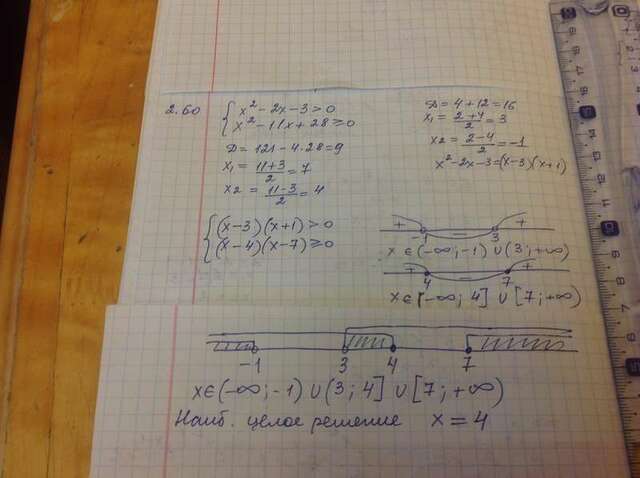 2.60
{ x² - 2x - 3 > 0
x² - 11x + 28 ≥ 0
D = 121 - 4·28 = 9
x₁ = (11+3)/2 = 7
x₂ = (11-3)/2 = 4
D = 4 + 12 = 16
x₁ = (2+4)/2 = 3
x₂ = (2-4)/2 = -1
x² - 2x - 3 = (x-3)(x+1)
{ (x-3)(x+1) > 0
(x-4)(x-7) ≥ 0
+ - +
-1 3
x ∈ (-∞; -1) ∪ (3; +∞)
+ - +
4 7
x ∈ [-∞; 4] ∪ [7; +∞)
-1 3 4 7
x ∈ (-∞; -1) ∪ (3; 4] ∪ [7; +∞)
Наиб. целое решение x = 4